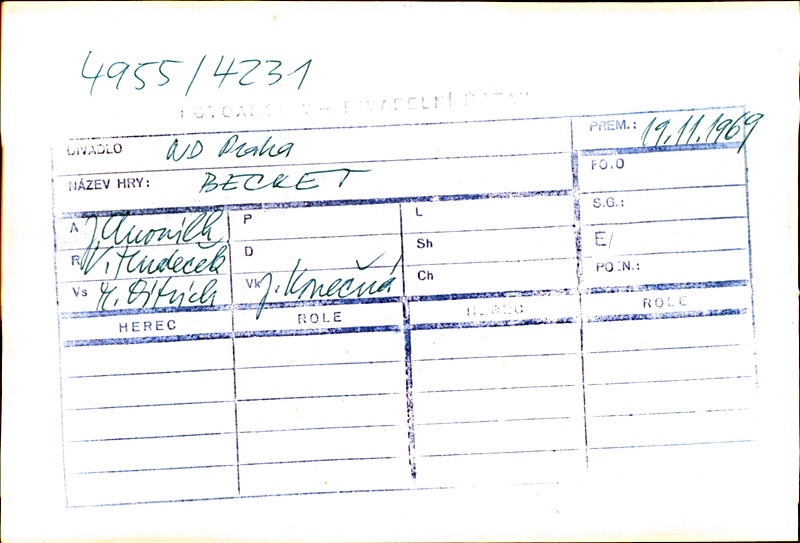 4955/4231
FOTOARCHIV – DIVADELNÍ ÚSTAV
DIVADLO ND Praha PREM.: 19.11.1969
NÁZEV HRY: BECKET FOTO
S.G.:
A J. P L
E/
R V. Hudeček D Sh
POZN.:
Vs Z. Ditrich Vk J. Konečná Ch
HEREC ROLE HEREC ROLE